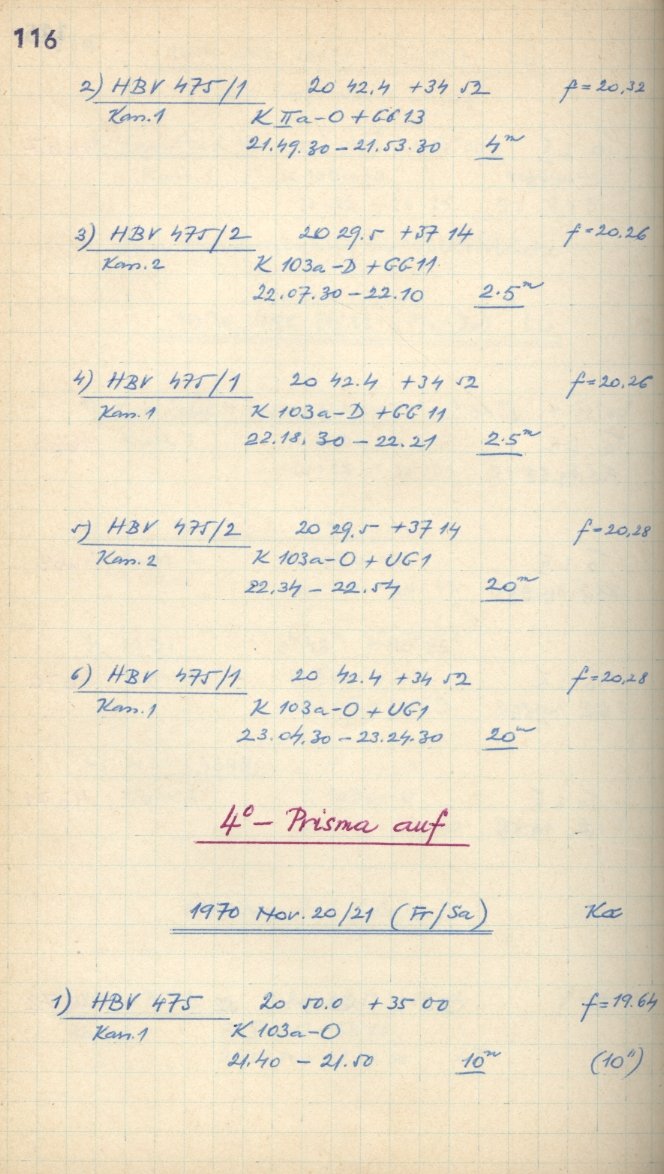 116
2) HBV 475/1 20 42.4 +34 52 f=20,32
Kas.1 K IIa-O + GG 13
21.49.30 – 21.53.30 4ᵐ
3) HBV 475/2 20 29.5 +37 14 f=20,26
Kas.2 K 103a-D + GG 11
22.07.30 – 22.10 2.5ᵐ
4) HBV 475/1 20 42.4 +34 52 f=20,26
Kas.1 K 103a-D + GG 11
22.18.30 – 22.21 2.5ᵐ
5) HBV 475/2 20 29.5 +37 14 f=20,28
Kas.2 K 103a-O + UG1
22.34 – 22.54 20ᵐ
6) HBV 475/1 20 42.4 +34 52 f=20,28
Kas.1 K 103a-O + UG1
23.04.30 – 23.24.30 20ᵐ
4° – Prisma auf
1970 Nov. 20/21 (Fr/Sa)
1) HBV 475 20 50.0 +35 00 f=19.64
Kas.1 K 103a-O
21.40 – 21.50 10ᵐ (10")